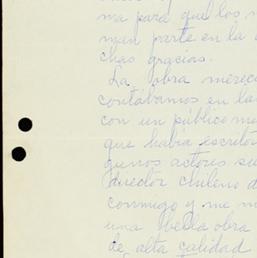 ma para que los
man parte en la
chas gracias.
La obra merec
contabamos en la
con un público me
que había escrito
gunos actores su
director chileno d
conmigo y me m
una bella obra
de alta calidad